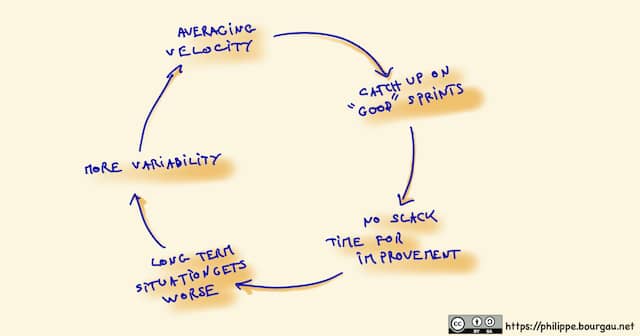 AVERAGING
VELOCITY
CATCH UP ON
"GOOD" SPRINTS
NO SLACK
TIME FOR
IMPROVEMENT
LONG TERM
SITUATION GETS
WORSE
MORE VARIABILITY
cc
BY SA
https://philippe.bourgau.net